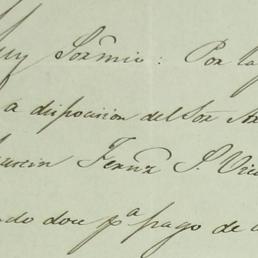 Muy Sor mio: Por la
a disposicion del Sor
Fernz S. Vic
do doce pa pago de